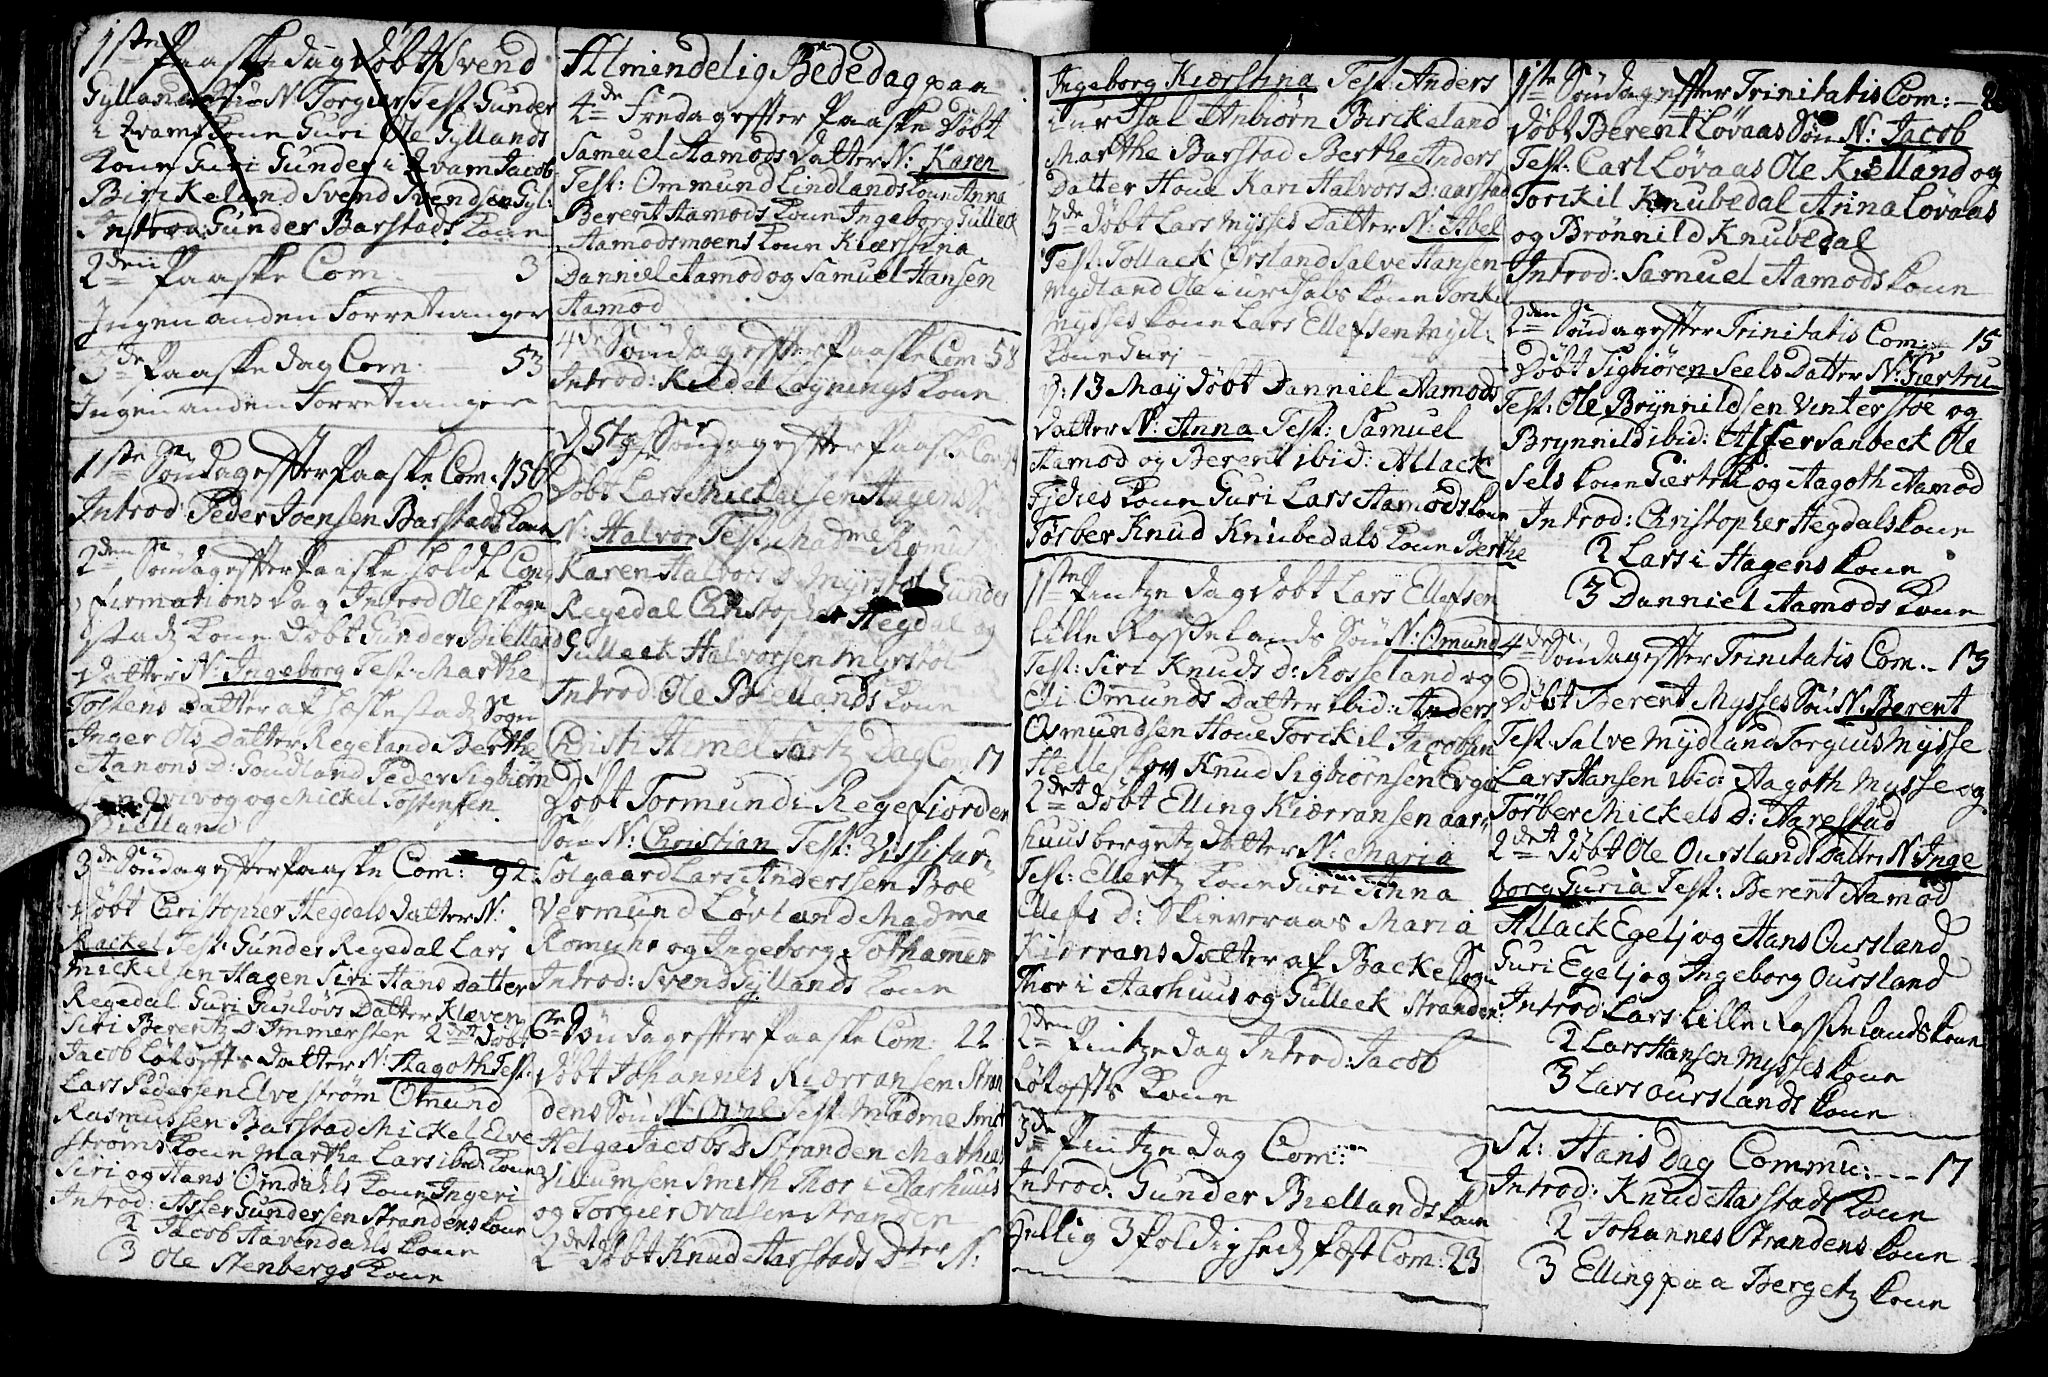 1ste Paaske dag døbt Svend
Gyllands Søn N: Torgius Test: Gunder
i Qvams Kone Guri Ole Gyllands
Kone Guri Gunder i Qvam Jacob
Birikeland Svend Svendsen Gyl:
Introd: Gunder Barstads Kone
2den Paaske Com: 3
Ingen anden Forretninger
3de Paaske dag Com: 53
Ingen anden Forretninger
1ste Søndag effter Paaske Com: 156
Introd: Peder Joensen Barstads Kone
2den Søndag effter Paaske holdt Con
firmations dag Introd Ole Skoge
stads Kone døbt Gunder Biellands
Datter N: Ingeborg Test: Marthe
Tostens Datter af Hæskestads Sogn
Inger Ols Datter Regeland Berthe
Aanons D: Soudland Peder Sigbiørn
sen og Mickel Tostensen
Bielland
3de Søndag effter Paaske Com: 92
døbt Christopher Hegdals datter N:
Rackel Test: Gunder Regedal Lars
Mickelsen Hagen Siri Hans Datter
Regedal Guri Gunløvs Datter Kleven
Siri Berentz D Immersten 2det døbt
Jacob Løtoffts datter N: Aagoth Test:
Lars Pedersen Elvestrøm Omund
Rasmussen Barstad Mickel Elve
strøms Kone Marthe Lars ibid: Kone
Siri og Hans Omdahls Kone Ingeri
Introd: Asser Gundersen Strandens Kone
2 Jacob Havendahls Kone
3 Ole Stenbergs Kone
Almindelig Bededag paa
4de Fredag effter Paaske Døbt
Samuel Aamods datter N: Karen
Test: Ommund Lindlands Kone Anna
Berent Aamods Kone Ingeborg Gulleck
Aamodsmoens Kone Kierstina
Danniel Aamod og Samuel Hansen
Aamod
4de Søndag effter Paaske Com: 58
Introd: Kiedel Løynings Kone
d 5te Søndag effter Paaske Com
Døbt Lars Mickelsen Hagens S
N: Halvor Test: Madme Romu
Karen Halvors D Myrstøl Gunder
Regedal Christopher Hegdal og
Gulleek Halvorsen Myrstøl
Introd: Ole Biellands Kone
Christi Hemelfartz Dag Com 17
Døbt Tormund i Regefiorden
Søn N: Christian Test:
Solgaard Lars Anderssen Boe
Vermund Løvland Madme
Romuhr og Ingeborg i Tothamer
Introd: Svend Gyllands Kone
6te Søndag effter Paaske Com: 22
døbt Johannes Kiærransen Stran
dens Søn N: Ovel Test: Madme Smit
Helga Jacobs D Stranden Mathias
Villumsen Smith Thor i Aarhuus
og Torgier Ovalsen Stranden
2det døbt Knud Aarstads Dter N:
Ingeborg Kierstina Test: Anders
i urdsal Anbiørn Birckeland
Marthe Barstad Berthe Anders
Datter Houe Kari Halvors D: aarstad
3de døbt Lars Mysses Datter N: Abel
Test: Tollack Ørsland Salve Hansen
Mydland Ole i urdsals Kone Torckil
Mysses Kone Lars Ellefsen Mydl:
Kone Gurj
d: 13 May døbt Danniel Aamods
datter N: Anna Test: Samuel
Aamod og Berent ibid: Atlack
Ejdies Kone Guri Lars Aamods Kone
Torber Knud Knubedals Kone Berthe
1ste Pintze dag døbt Lars Ellefsen
Lille Rosselands Søn N: Omund
Test: Siri Knuds D: Rosseland og
Eli Omunds Datter ibid: Anders
Osmundsen Houe Torckil Jacobsen
Knud Sigbiørnsen Evga
2det døbt Elling Kiærransen aar
huusbergetz datter N: Maria
Test: Ellertz Kone Guri Anna
Elefs D: Skieveraas Maria
Kiærrans datter af Backe Sogn
Thor i Aarhuus og Gulleek Stranden
2den Pintze dag Introd: Jacob
Løtoffts Kone
3de Pintze dag Com: 2
Introd: Gunder Biellands Kone
Hellig 3foldigheds fæst Com: 23
1ste Søndag effter Trinitatis Com: 2
døbt Berent Løvaas Søn N: Jacob
Test: Carl Løvaas Ole Kielland og
Torckil Knubedal Anna Løvaas
og Brønnild Knubedal
Introd: Samuel Aamods Kone
2den Søndag effter Trinitatis Com: 15
Døbt Sigbiøren Seels Datter N: Giertru
Test: Ole Brynnildsen Vinterstøe og
Brynnild ibid: Asser Sanbeck Ole
Sels Kone Giertru og Aagoth Aamod
Introd: Christopher Hegdals Kone
2 Lars i Hagens Kone
3 Danniel Aamods Kone
4de Søndag effter Trinitatis Com: 13
Døbt Berent Mysses Søn N: Berent
Test: Salve Mydland Torgius Mysse
Lars Hansen ibid: Aagoth Mysse og
Torber Mickels D: Aarestad
2det døbt Ole Ourslands Datter N: Inge
borg Guria Test: Berent Aamod
Atlack Egelj og Hans Oursland
Guri Egelj og Ingeborg Oursland
Introd: Lars Lille Rosselands Kone
2 Lars Hansen Mysses Kone
3 Lars Ourslands Kone
St: Hans Dag Commu: 17
Introd: Knud Aarstads Kone
2 Johannes Strandens Kone
3 Elling paa Bergetz Kone